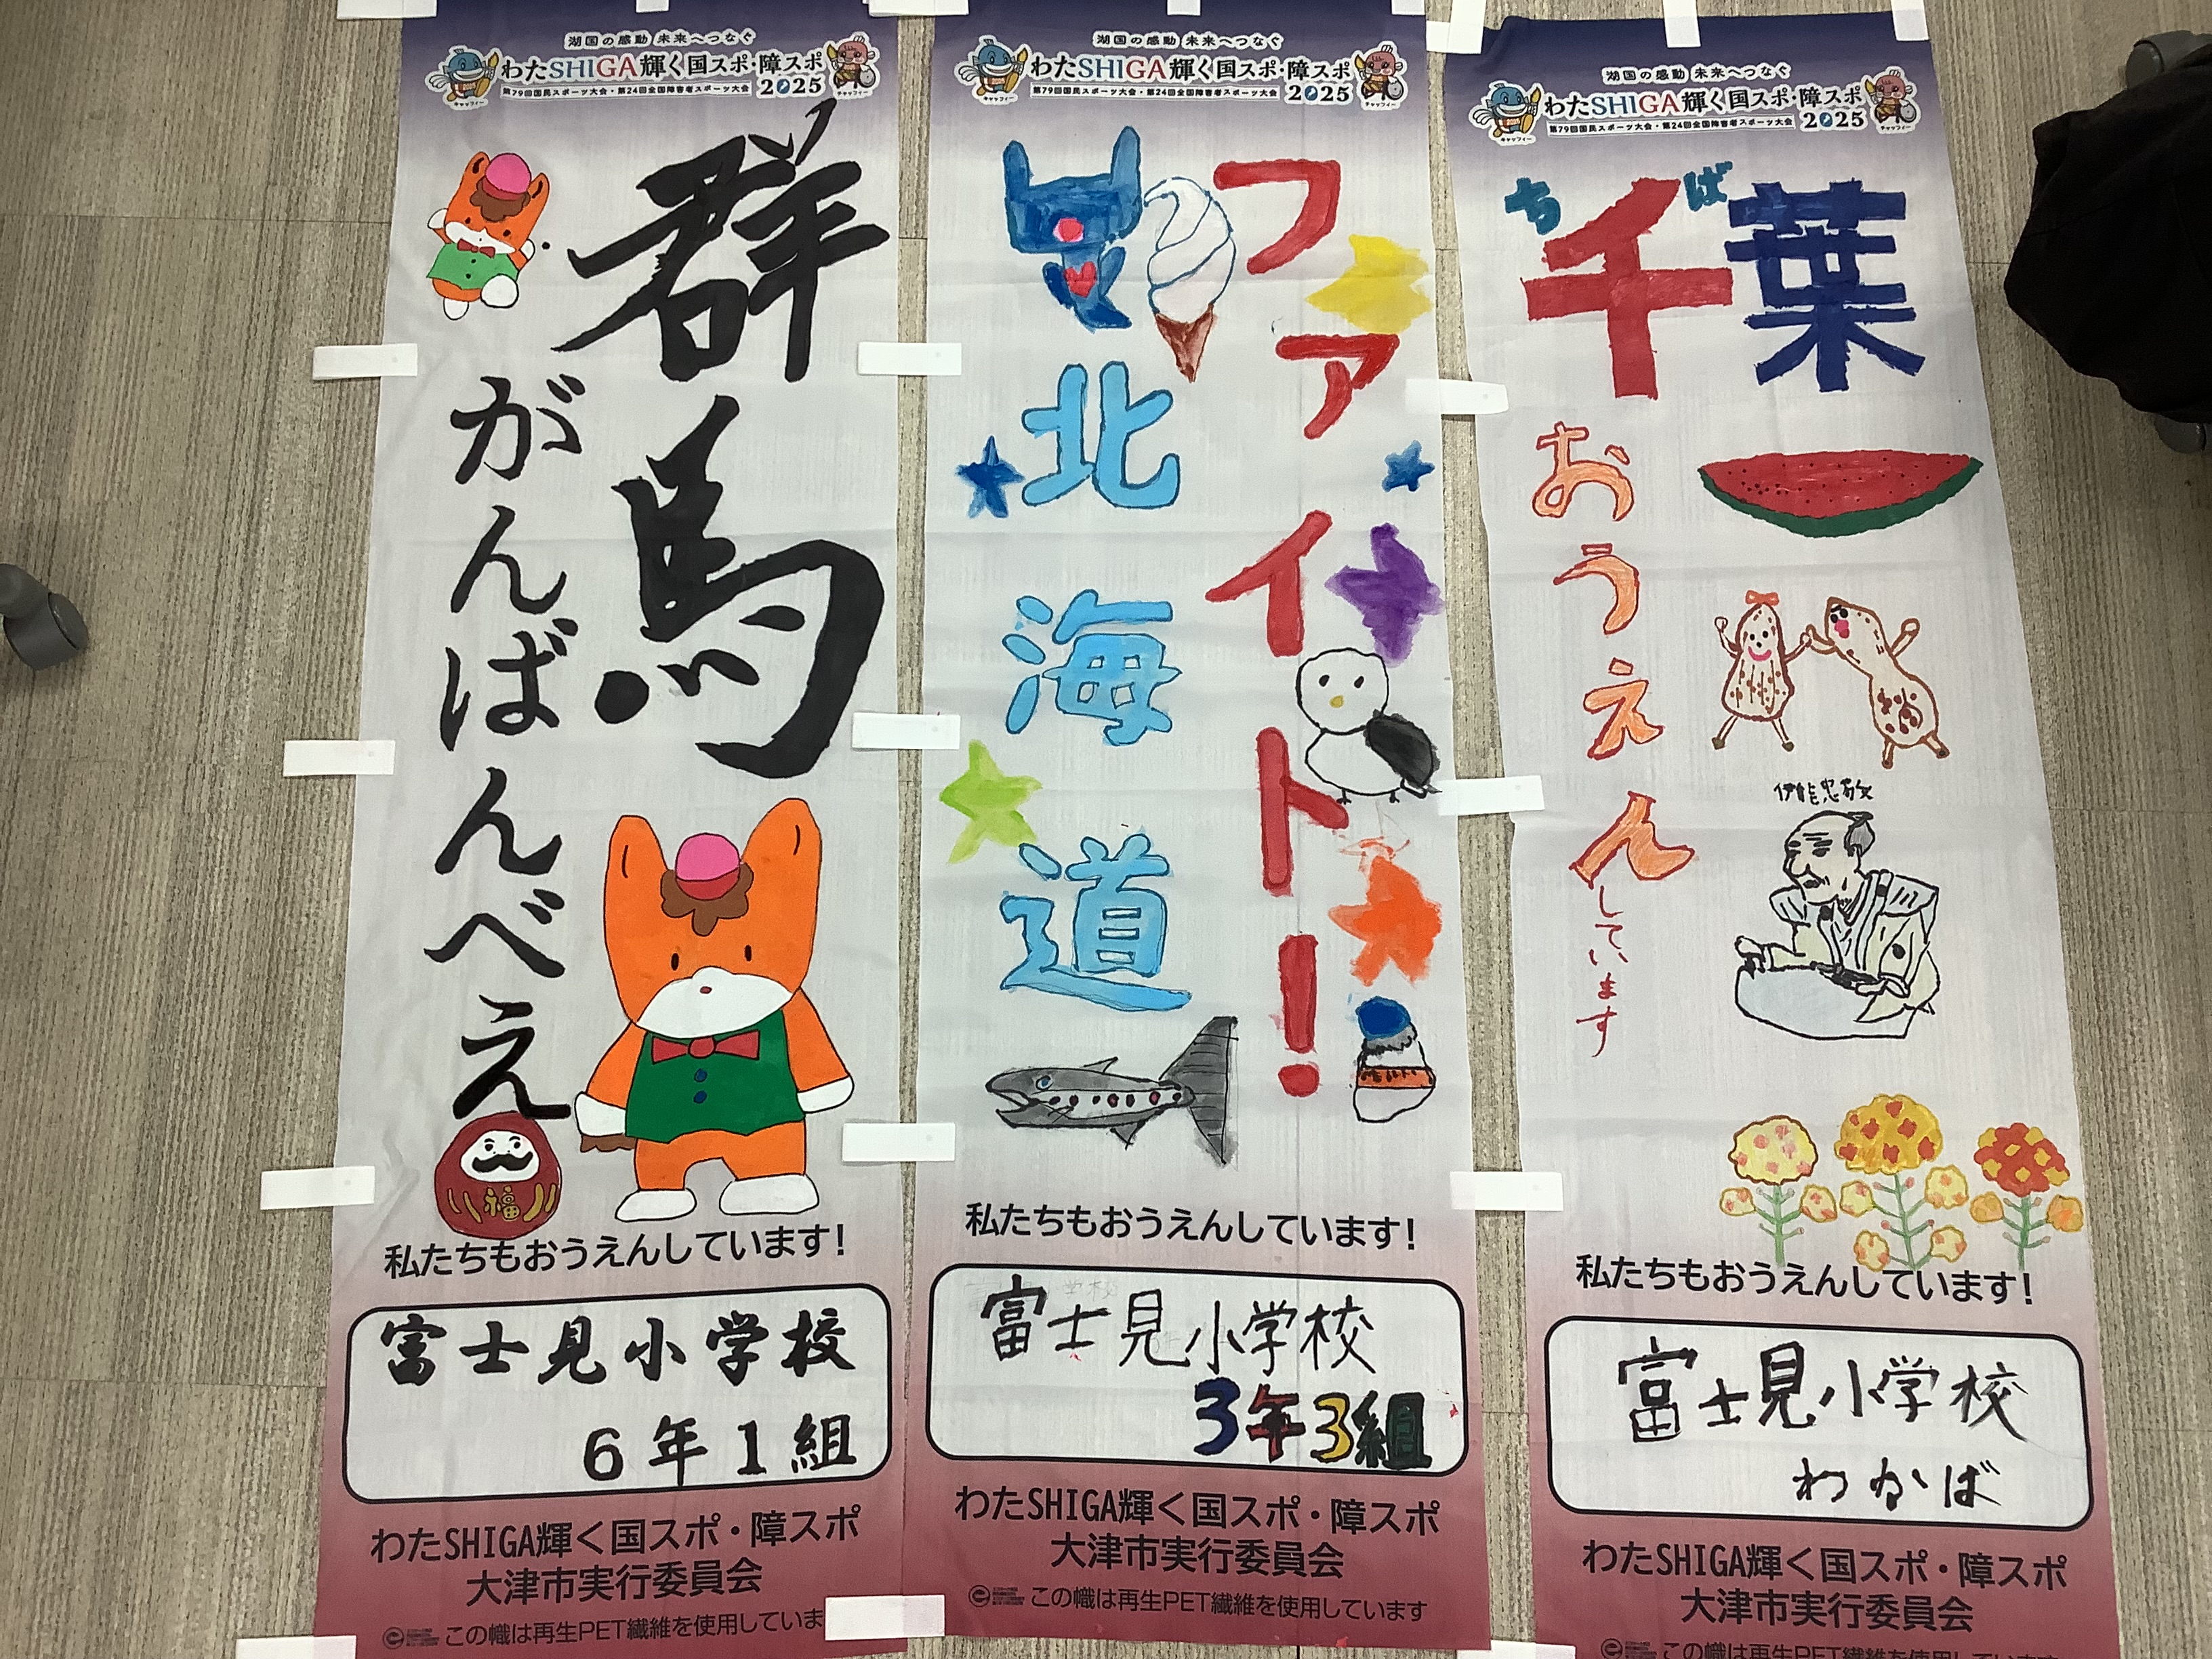 湖国の感動 未来へつなぐ
わたSHIGA輝く国スポ・障スポ
第79回国民スポーツ大会・第24回全国障害者スポーツ大会 2025
チャッフィー
チャッフィー
群馬
がんばんべえ
福
私たちもおうえんしています!
富士見小学校
6年1組
わたSHIGA輝く国スポ・障スポ
大津市実行委員会
この幟は再生PET繊維を使用していま
湖国の感動 未来へつなぐ
わたSHIGA輝く国スポ・障スポ
第79回国民スポーツ大会・第24回全国障害者スポーツ大会 2025
チャッフィー
チャッフィー
ファイト!
北海道
私たちもおうえんしています!
富士見小学校
3年3組
わたSHIGA輝く国スポ・障スポ
大津市実行委員会
この幟は再生PET繊維を使用しています
湖国の感動 未来へつなぐ
わたSHIGA輝く国スポ・障スポ
第79回国民スポーツ大会・第24回全国障害者スポーツ大会 2025
チャッフィー
チャッフィー
ちば
千葉
おうえんしています
伊能忠敬
私たちもおうえんしています!
富士見小学校
わかば
わたSHIGA輝く国スポ・障スポ
大津市実行委員会
この幟は再生PET繊維を使用しています